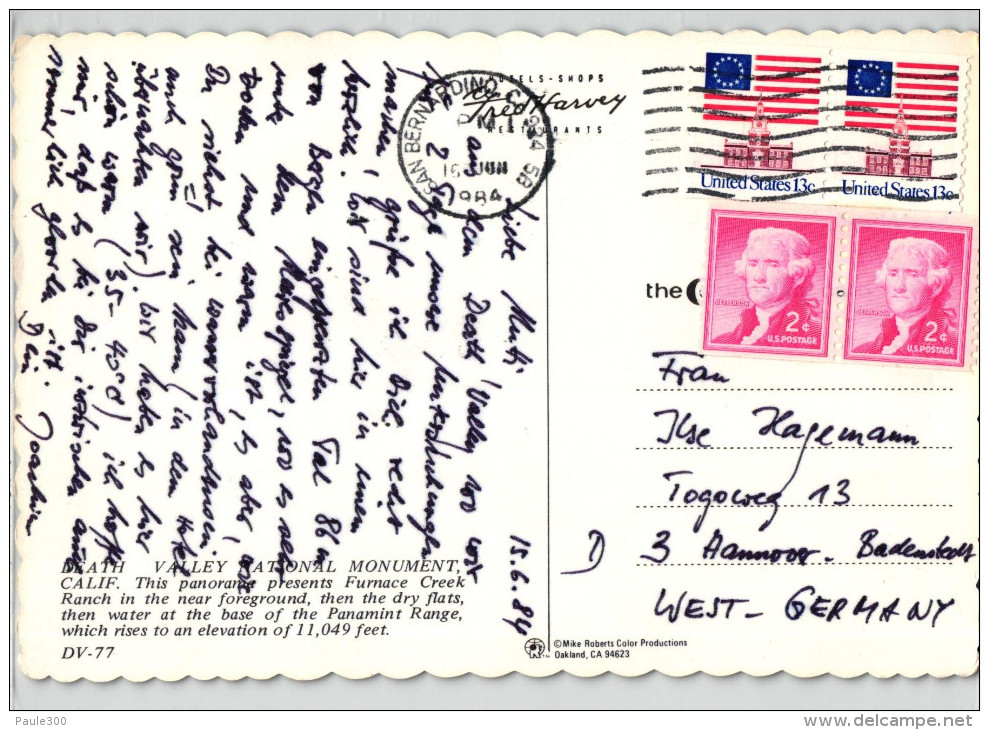 HOTELS-SHOPS
Fred Harvey
RESTAURANTS
SAN BERNARDINO, CA 924 58
PM
16 JUN
1984
United States 13c
United States 13c
JEFFERSON
2¢
U.S. POSTAGE
JEFFERSON
2¢
U.S. POSTAGE
the
15.6.84
Liebe Mutti,
aus dem Death Valley wo wir
2 Tage unsere
machen, grüße ich Dich recht
herzlich. Wir sind hier in einem
von Bergen Tal 86 m
unter dem Meeresspiegel, wo es sehr
trocken und warm ist, es aber, wo
Du siehst bei
auch grün sein kann (in dem Hotel
übernachten wir) wir haben es hier
schön warm (35-40°C) ich hoffe
mir, daß es bei Dir inzwischen auch
sommerlich geworden ist.
Dein Joachim
Frau
Ilse Hagemann
Togoweg 13
D 3 Hannover-Badenstedt
WEST-GERMANY
DEATH VALLEY NATIONAL MONUMENT,
CALIF. This panorama presents Furnace Creek
Ranch in the near foreground, then the dry flats,
then water at the base of the Panamint Range,
which rises to an elevation of 11,049 feet.
DV-77
©Mike Roberts Color Productions
Oakland, CA 94623
Paule300
www.delcampe.net